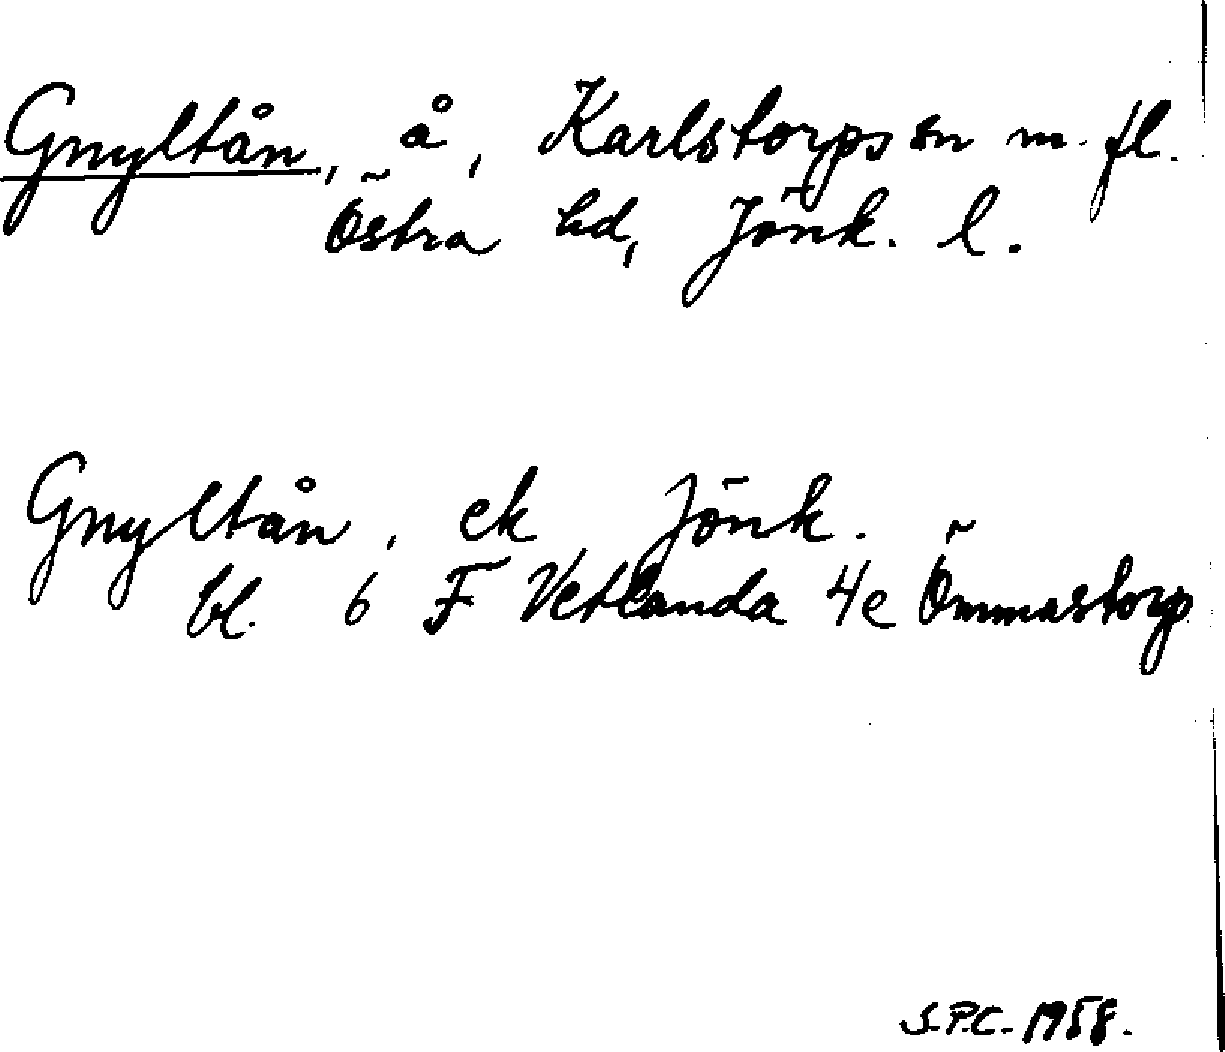 Gnyltån, å, Karlstorps sn m. fl.
Östra hd, Jönk. l.
Gnyltån, ek Jönk.
bl. 6 F Vetlanda 4e Ömmastorp
S.P.C. 1958.